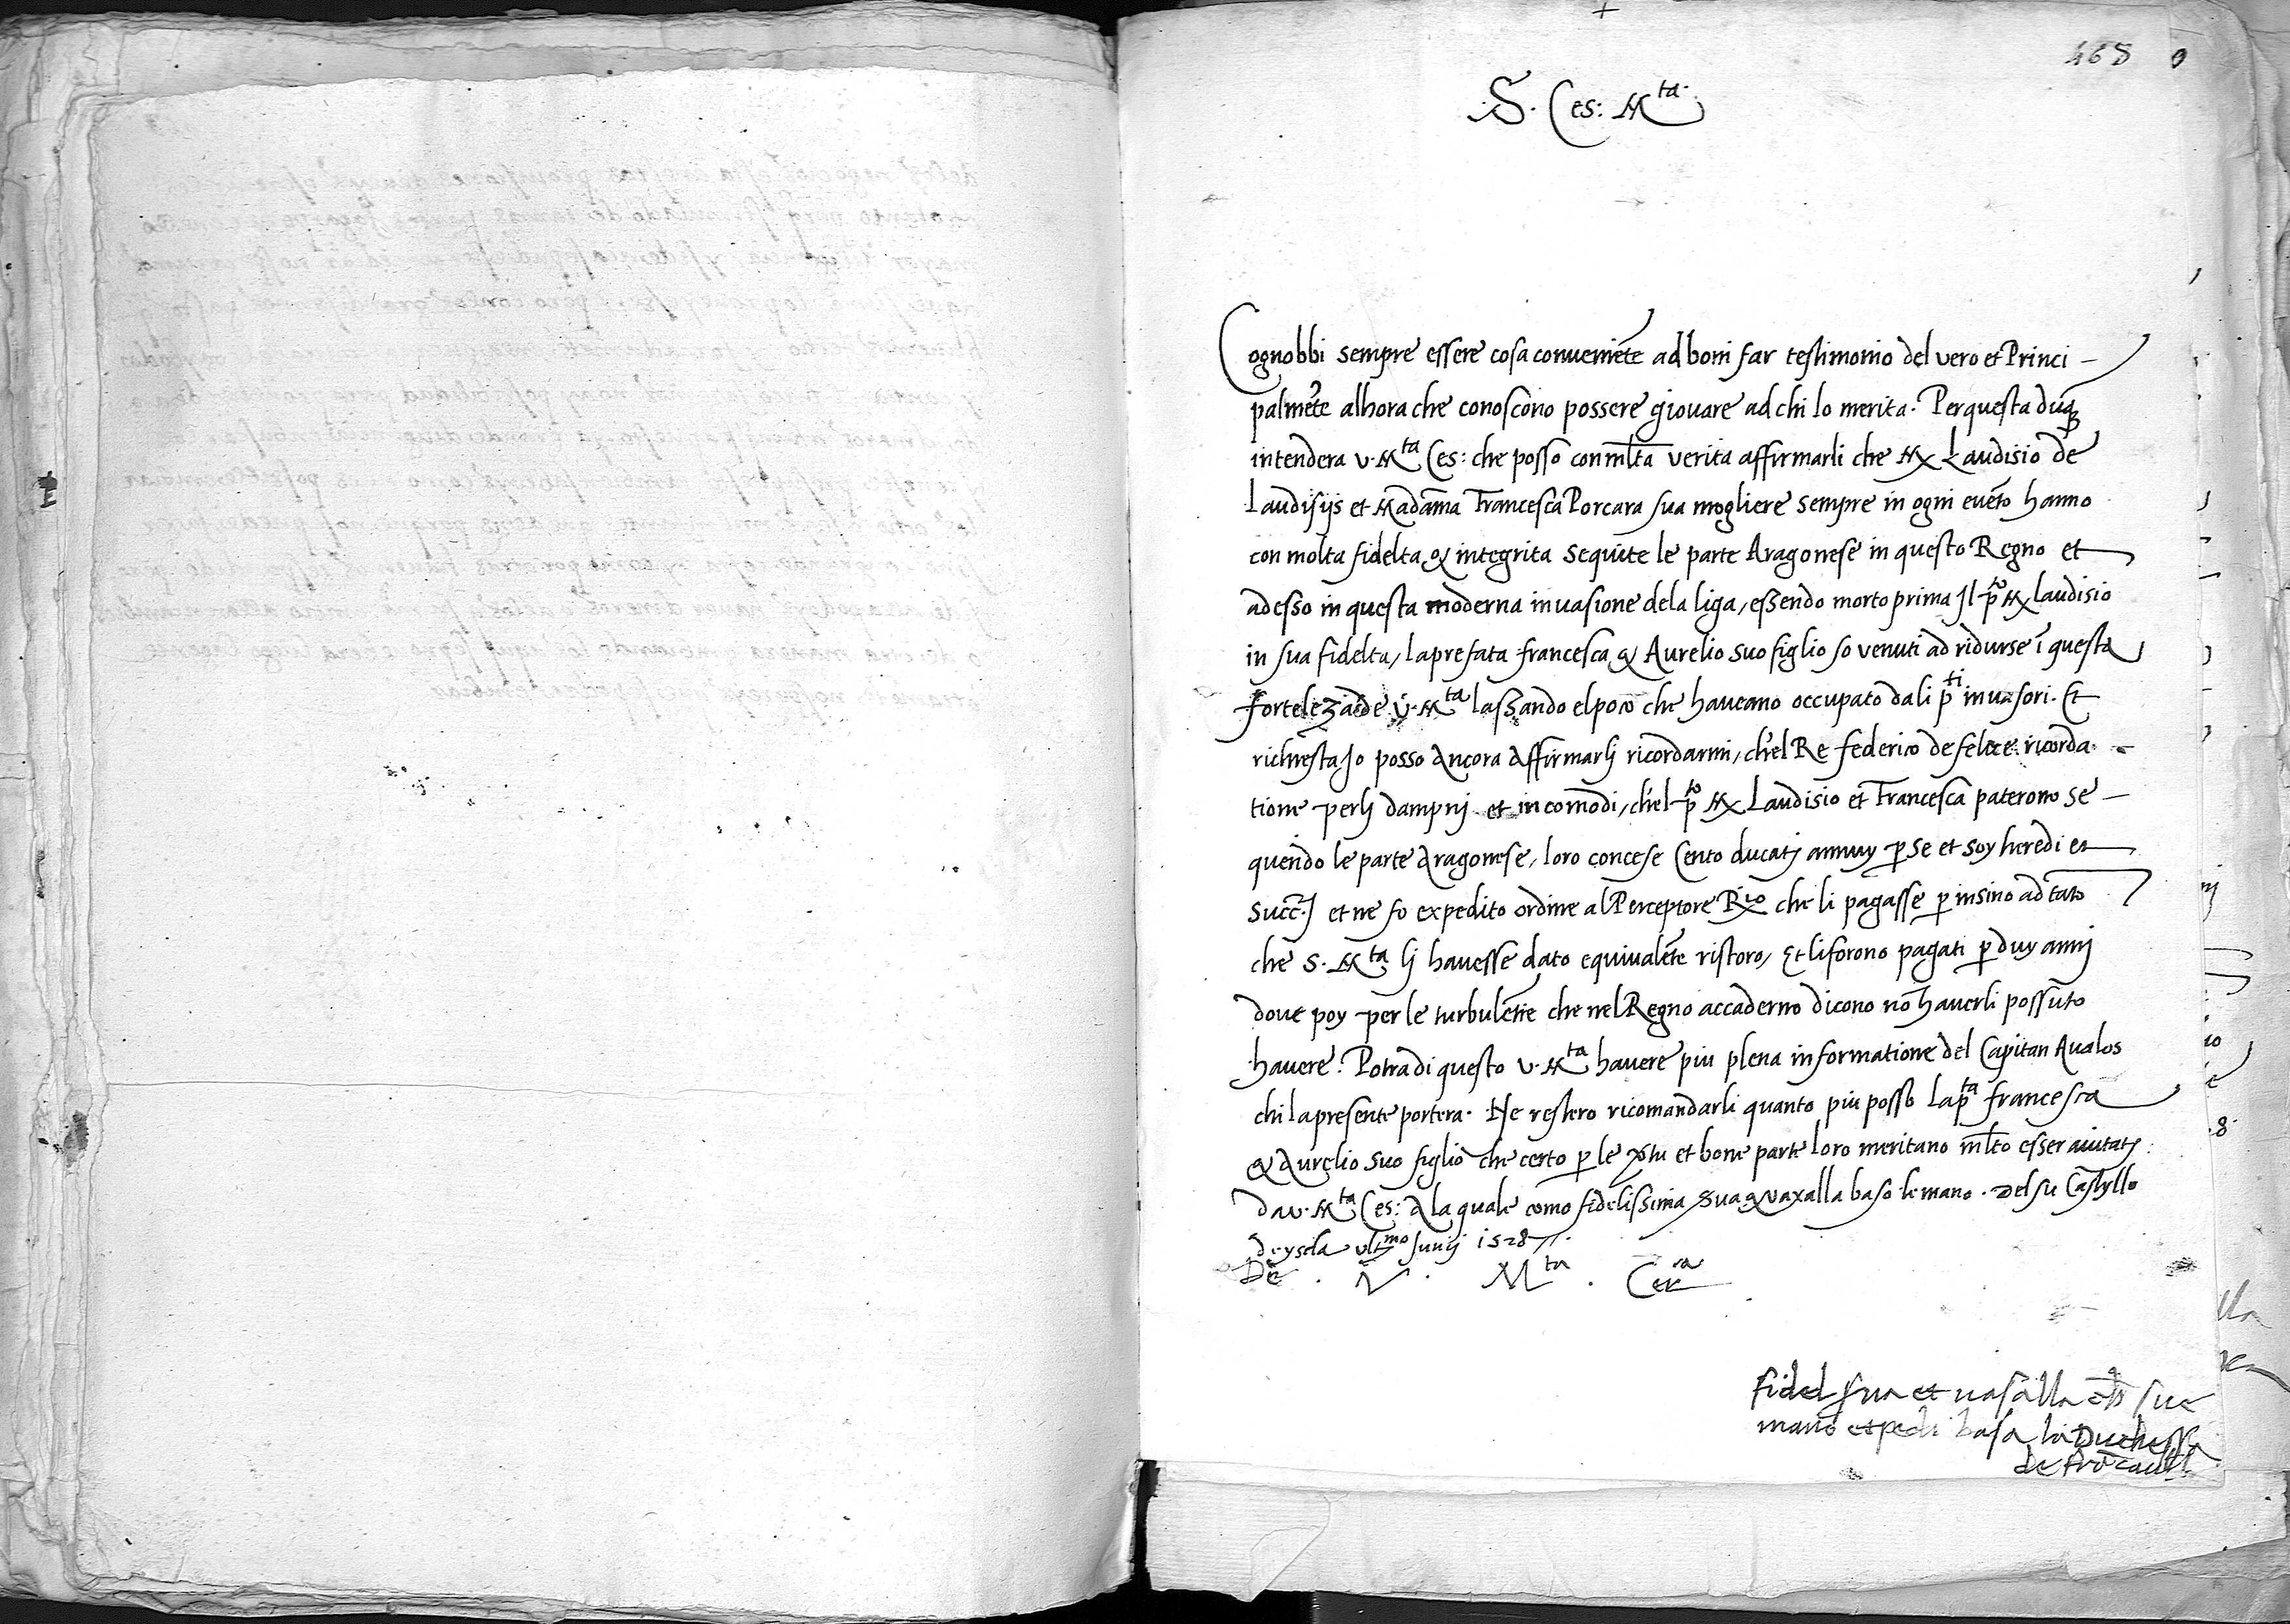 +
468
S. Ces: Mta.
Cognobbi sempre essere cosa conveniẽte ad boni far testimonio del vero et Princi-
palmẽte alhora che conoscono possere giovare ad chi lo merita. Per questa duq̃
intendera v. Mta Ces: che posso con mlta verita affirmarli che Mx Laudisio de
Laudisijs et Madãma Francesca Porcara sua mogliere sempre in ogni evẽto hanno
con molta fidelta & integrita sequite le parte Aragonese in questo Regno et
adesso in questa moderna invasione dela liga, essendo morto prima Il pto Mx laudisio
in sua fidelta, la prefata francesca & Aurelio suo figlio so venuti ad ridurse ĩ questa
forteleza de V. Mta lassando el poco che haveano occupato dali pti invasori. Et
richiesta Io posso Ancora Affirmarli ricordarmi, ch'el Re federico de felece ricorda-
tione perli dampnj et incomodi, ch'el pto Mx Laudisio et Francesca paterono se-
quendo le parte Aragonese, loro concese Cento ducatj annuy p se et soy heredi et
succ.ri et ne fo expedito ordine al Perceptore Rio che li pagasse p insino ad tãto
che S. Mta li havesse dato equivalẽte ristoro, Et li forono pagati p duy annj
dove poy per le turbulẽtie che nel Regno accaderno dicono nõ haverli possuto
havere. Potra di questo v. Mta havere piu plena informatione del Capitan Avalos
chi la presente portera. Ne restero ricomandarli quanto piu posso la pta francesca
& Aurelio suo figlio che certo p le vtu et bone parte loro meritano mlto esser aiutatj
da v. Mta Ces: A la quale como fidelissima sua & vaxalla baso le mano. Del su Castyllo
de yscla ultimo Junij 1528.
De . V . Mta . Cesa
fidel sua et uasalla che sue
mano et pedi basa la Duchessa
de francauilla